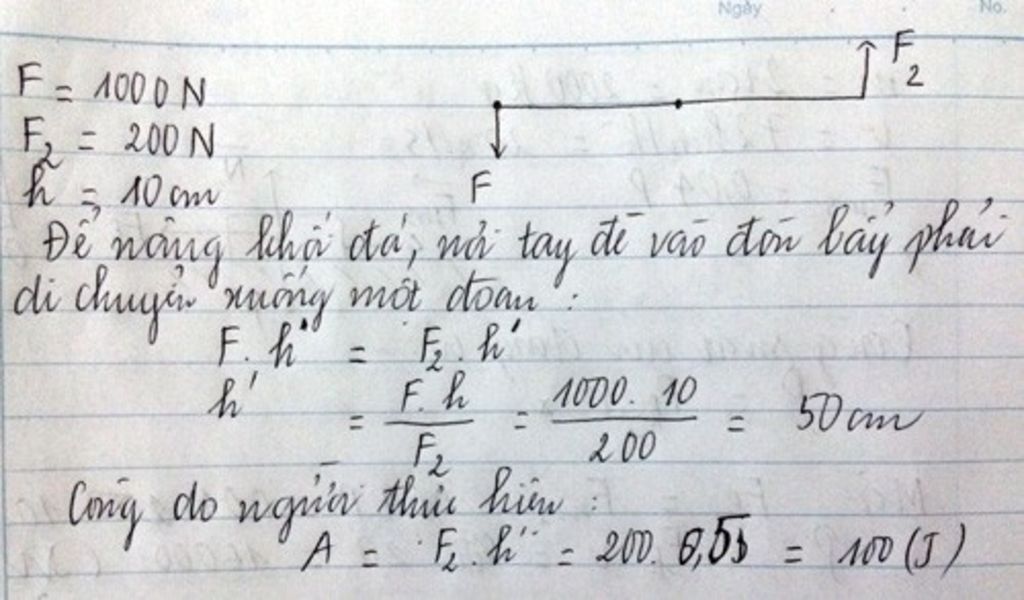 Ngày No.
F = 1000 N
F₂ = 200 N
h = 10 cm
F₂
F
Để nâng khối đá, nơi tay đè vào đòn bẩy phải
di chuyển xuống một đoạn :
F . h = F₂ . h'
h' = F . h / F₂ = 1000 . 10 / 200 = 50 cm
Công do người thực hiện :
A = F₂ . h' = 200 . 0,5 = 100 (J)